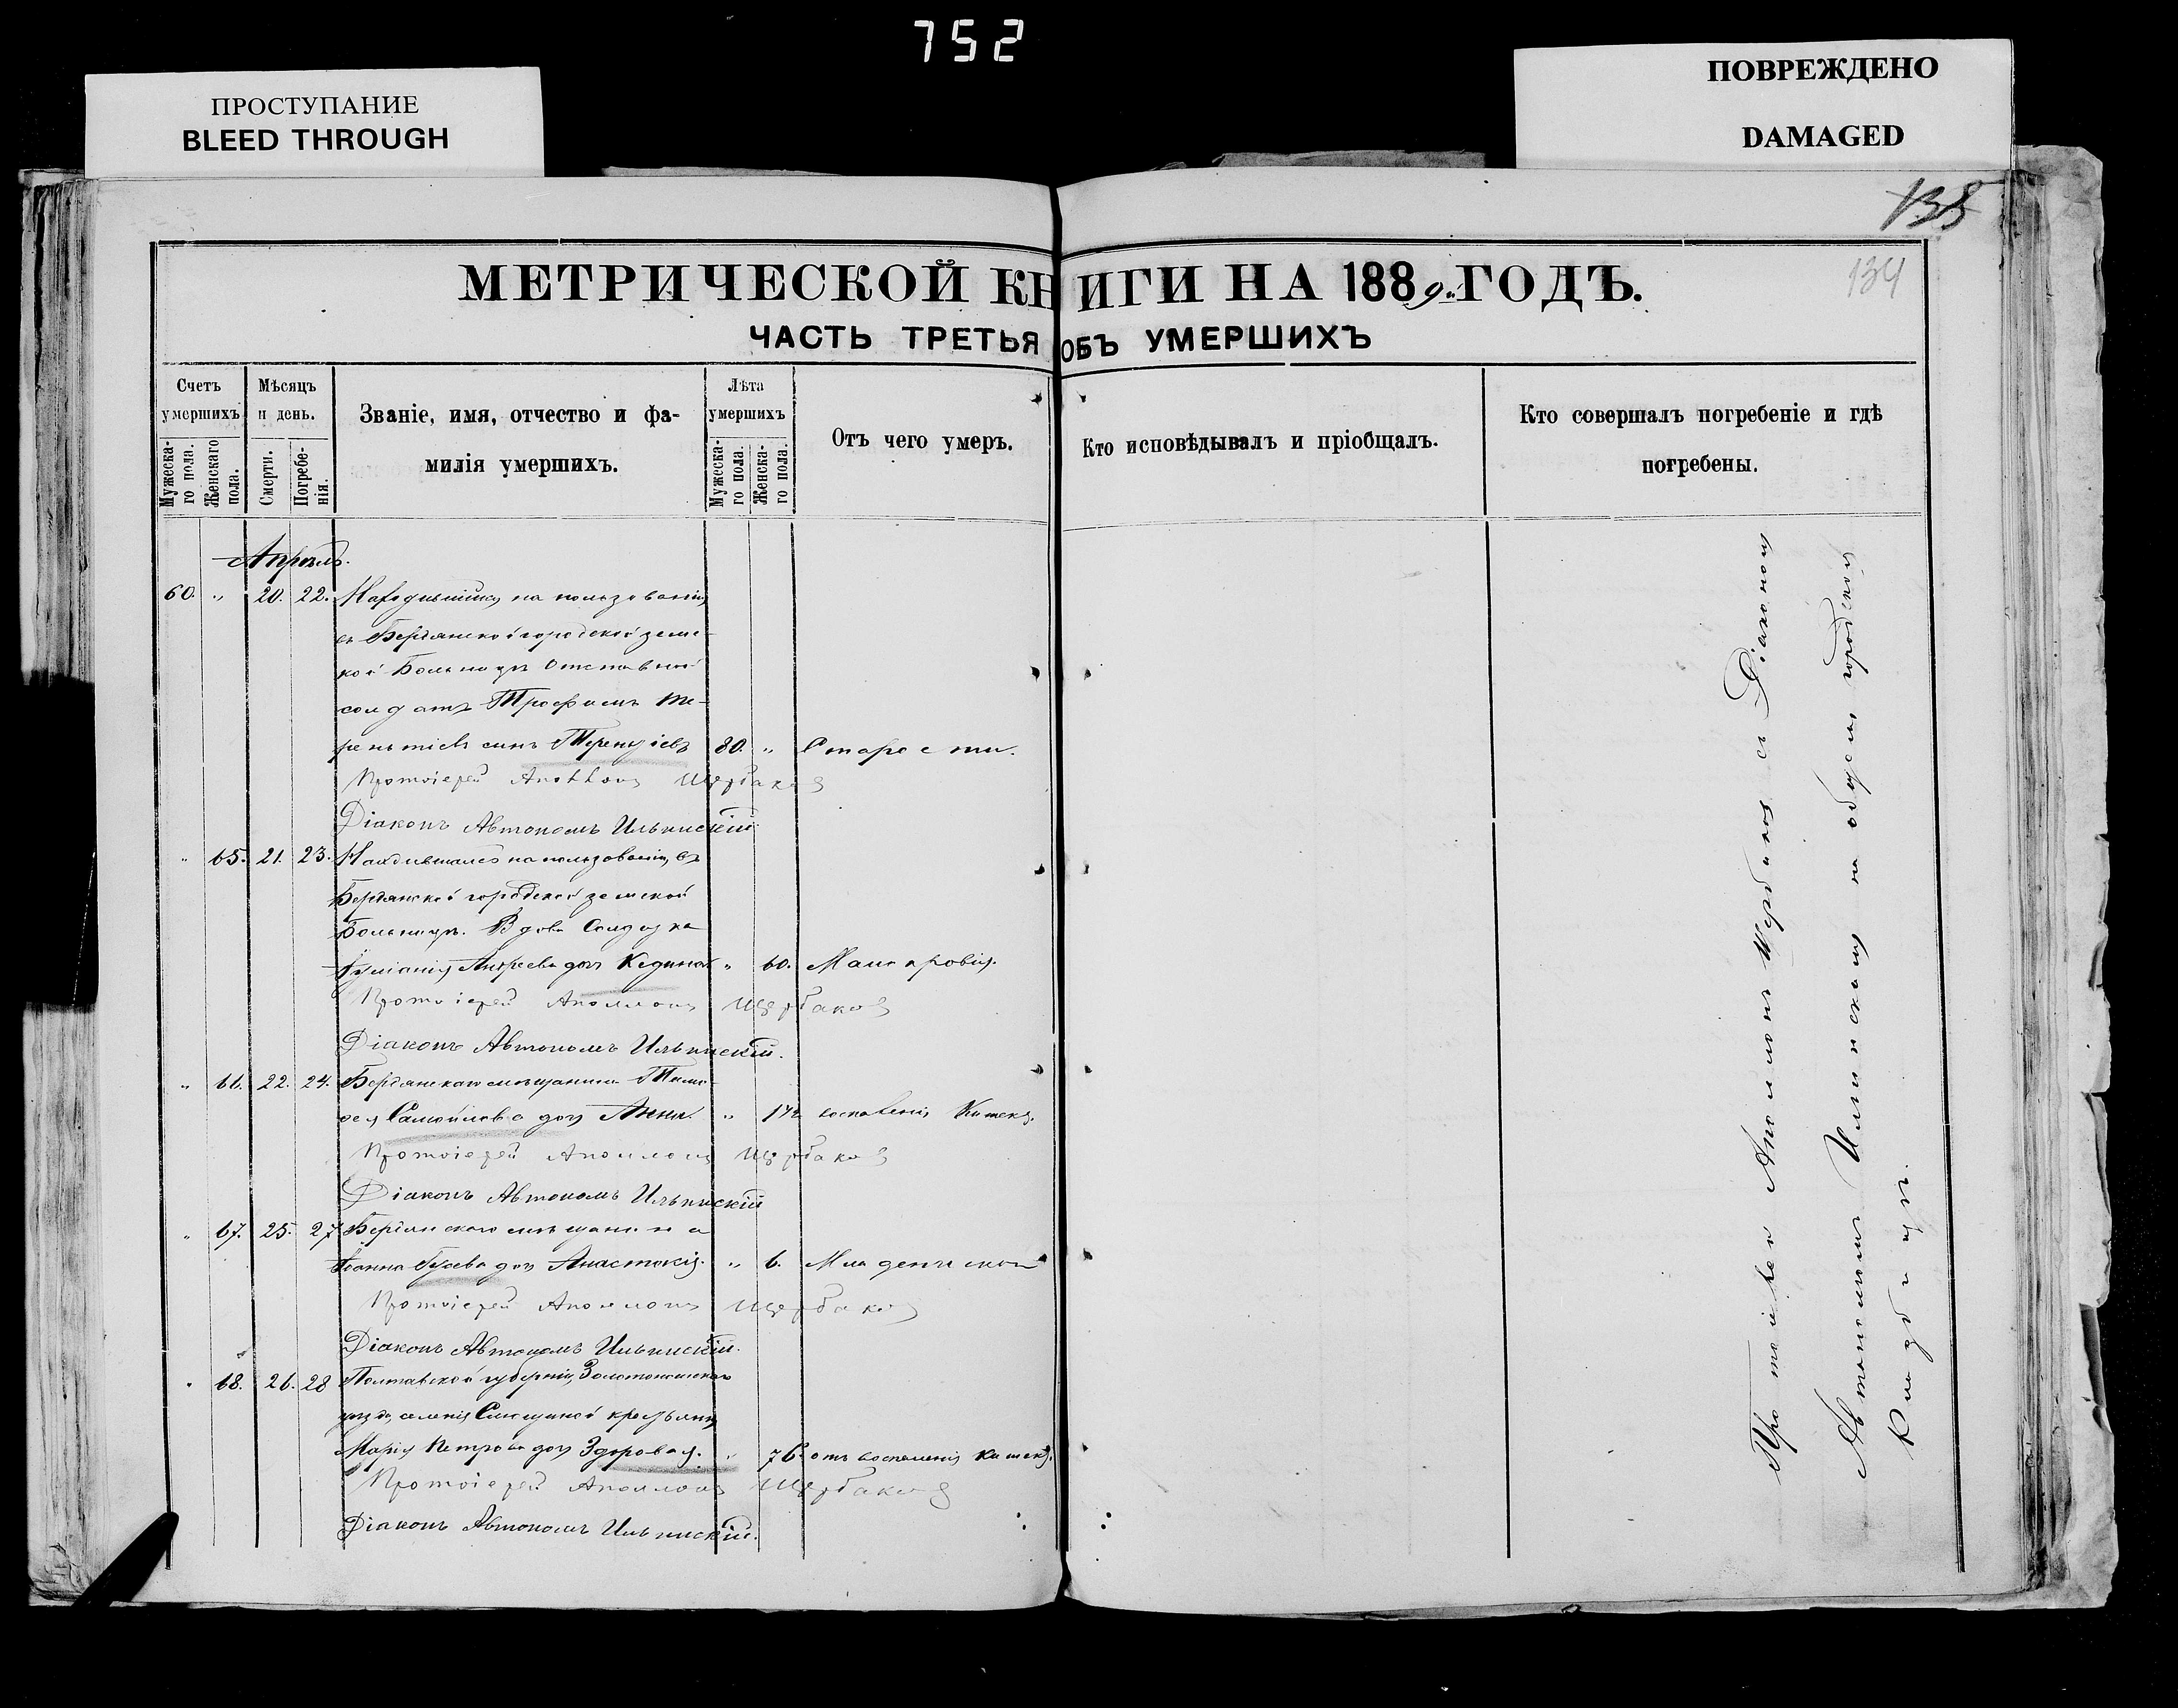 752
ПРОСТУПАНИЕ
BLEED THROUGH
ПОВРЕЖДЕНО
DAMAGED
135
134
МЕТРИЧЕСКОЙ КНИГИ НА 1889 ГОДЪ.
ЧАСТЬ ТРЕТЬЯ ОБЪ УМЕРШИХЪ
Счетъ умершихъ
Мужеска-го пола.
Женскаго пола.
Мѣсяцъ и день.
Смерти.
Погребе-нія.
Званіе, имя, отчество и фа-
милія умершихъ.
Лѣта умершихъ
Мужеска-го пола.
Женска-го пола.
Отъ чего умеръ.
Кто исповѣдывалъ и пріобщалъ.
Кто совершалъ погребеніе и гдѣ
погребены.
Апрѣль.
60. „ 20. 22. Находившійся на пользованіи
въ Бердянской городской земс-
кой Больницѣ Отставной
солдатъ Трофимъ Те-
рентіевъ сынъ Терентіевъ 80. „ Старости.
Протоіерей Аполлонъ Щербаковъ
Діаконъ Автономъ Ильинскій.
„ 65. 21. 23. Находившаяся на пользованіи, въ
Бердянской городской земской
Больницѣ. Вдова Солдатка
Іуліанія Андреева дочь „ 60. Малокровія.
Протоіерей Аполлонъ Щербаковъ
Діаконъ Автономъ Ильинскій.
„ 66. 22. 24. Бердянскаго мѣщанина Тимо-
фея Самойлова дочь Анна. „ воспаленія Кишекъ.
Протоіерей Аполлонъ Щербаковъ
Діаконъ Автономъ Ильинскій
„ 67. 25. 27 Бердянскаго мѣщанина
Іоанна Гусева дочь Анастасія. „ 6. Младенческой
Протоіерей Аполлонъ Щербаковъ
Діаконъ Автономъ Ильинскій.
„ 68. 26. 28 Полтавской губерніи, Золотоношскаго
уѣзда, селенія крестьянка
Марія Петрова дочь Здоровая. „ 76. отъ воспаленія кишекъ.
Протоіерей Аполлонъ Щербаковъ
Діаконъ Автономъ Ильинскій.
Протоіерей Аполлонъ Щербаковъ съ Діакономъ
Автономомъ Ильинскимъ на общемъ городскомъ
Кладбищѣ.